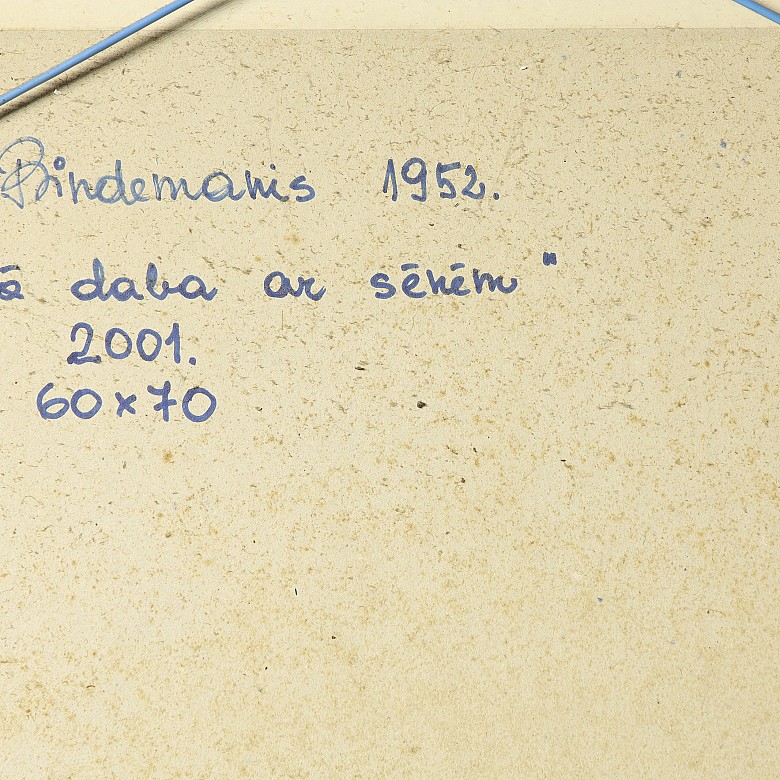 Bindemanis 1952.
ā daba ar sēnēm"
2001.
60x70